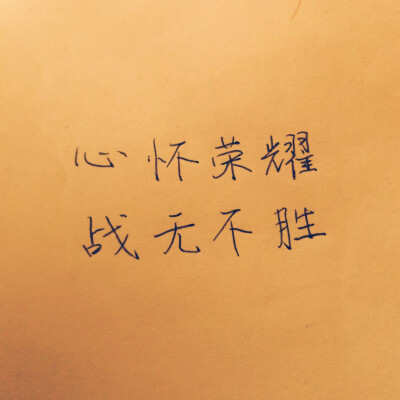 心怀荣耀
战无不胜